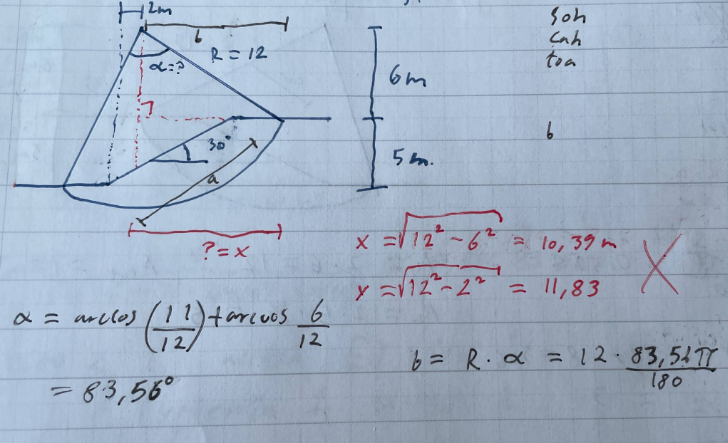 2m
b
R = 12
α = ?
6m
30°
5m.
a
? = x
soh
cah
toa
b
x = √12² - 6² = 10,39 m
x = √12² - 2² = 11,83
α = arccos (11/12) + arccos 6/12
= 83,56°
b = R · α = 12 · 83,52π/180